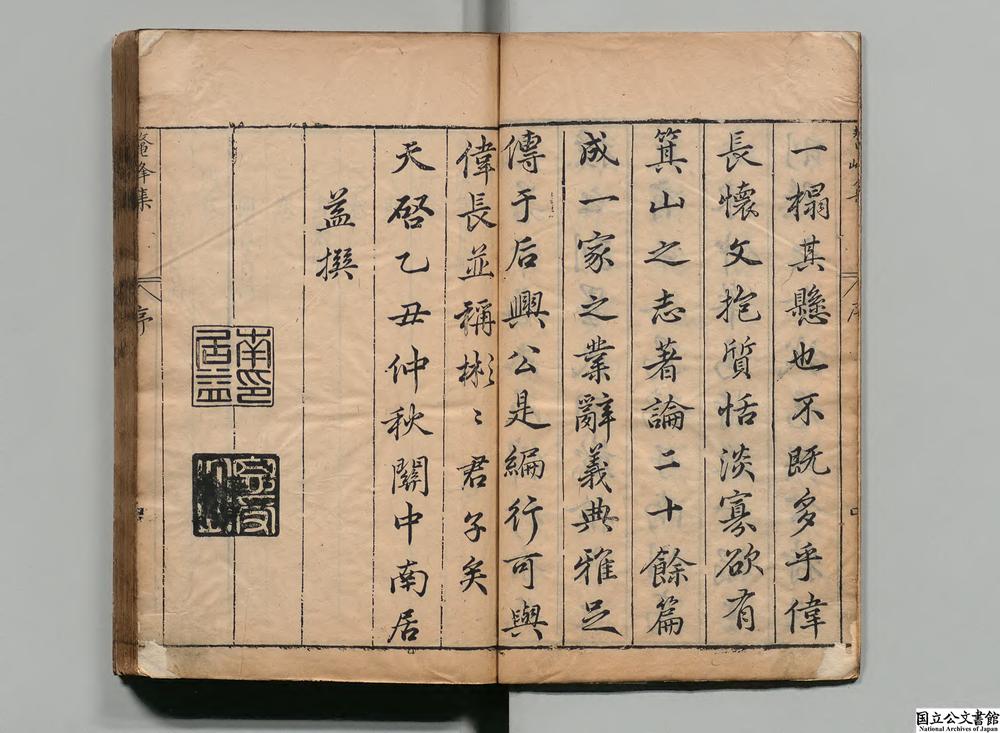 一榻其懸也不既多乎偉
長懷文抱質恬淡寡欲有
箕山之志著論二十餘篇
成一家之業辭義典雅足
傳于后興公是編行可與
偉長並稱彬彬君子矣
天啓乙丑仲秋關中南居
益撰
南居益印
鰲峰集
序
国立公文書館
National Archives of Japan